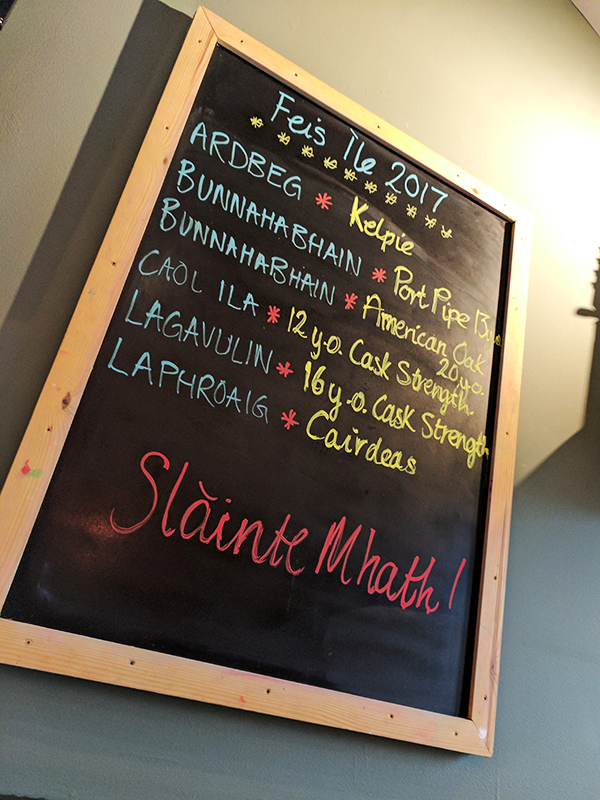 Feis Ìle 2017
* * * * * * * * * *
ARDBEG * Kelpie
BUNNAHABHAIN * Port Pipe 13 y.o.
BUNNAHABHAIN * American Oak 20 y.o.
CAOL ILA * 12 y.o. Cask Strength.
LAGAVULIN * 16 y.o. Cask Strength
LAPHROAIG * Cairdeas
Slàinte Mhath!